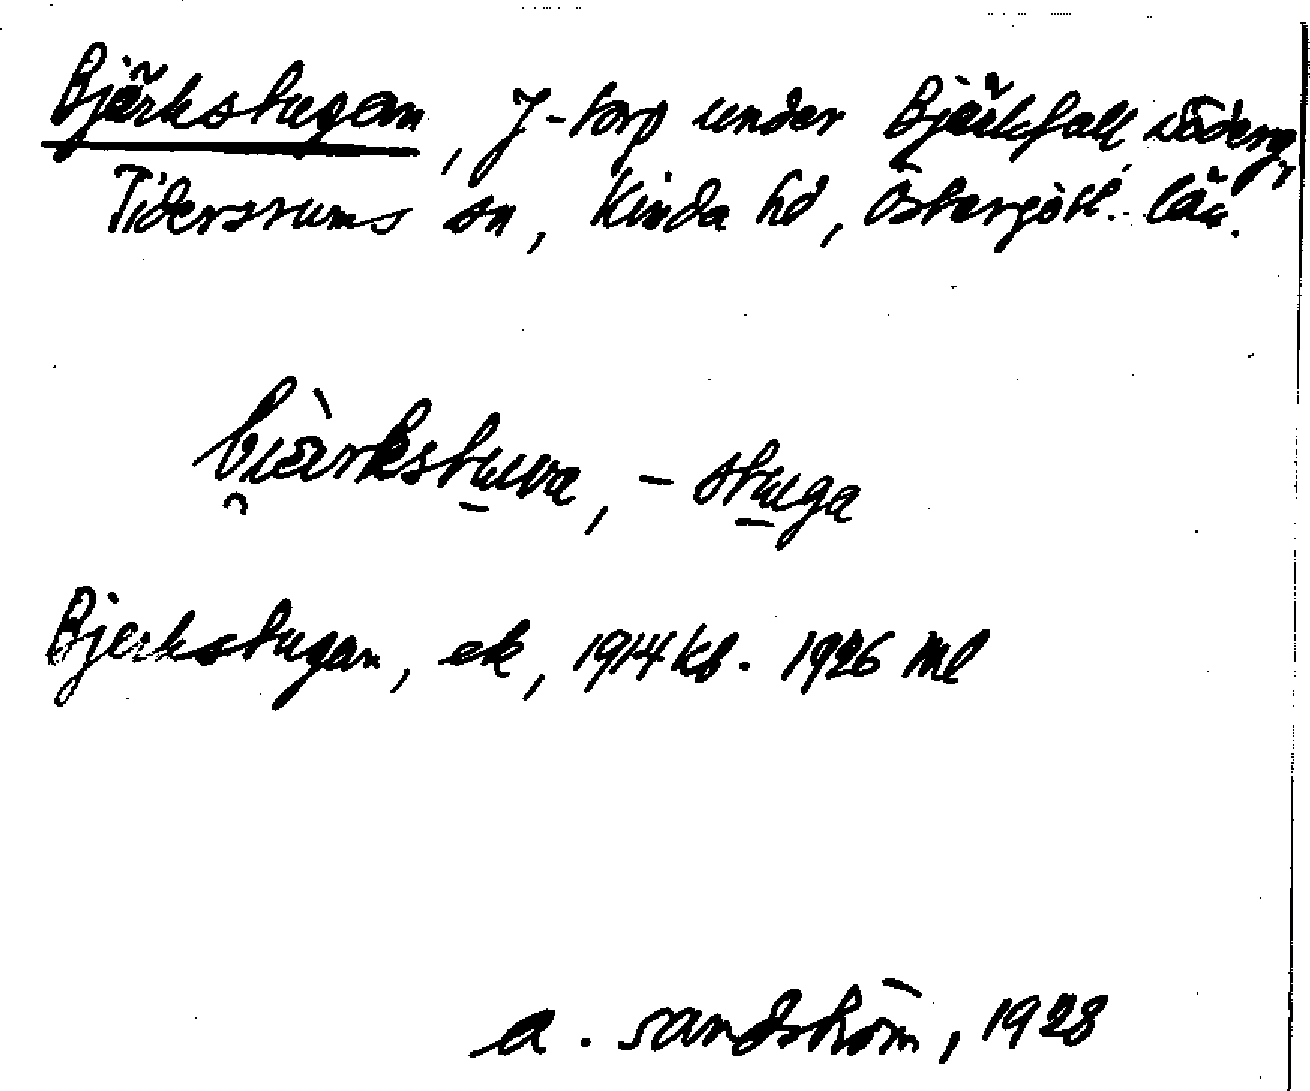 Björkstugan, J-torp under Björkfall söderg,
Tidersrums sn, Kinda hd, Östergötl. län.
biärkstuva, - stuga
Bjerkstugan, ek, 1914 kb. 1926 Ml
A. Sandström, 1928